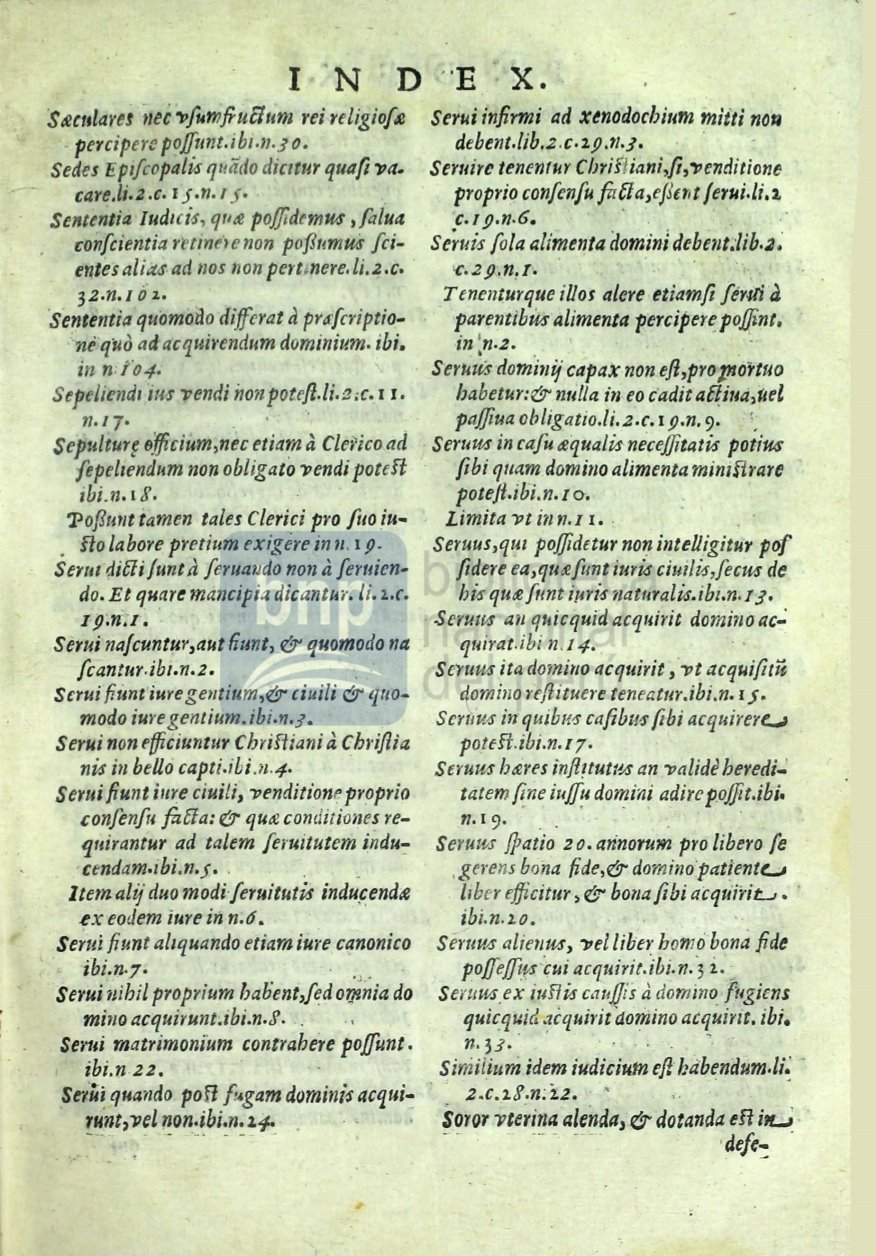 INDEX.
Sæculares nec vſumfructum rei religioſæ
percipere poſſunt.ibi.n.30.
Sedes Epiſcopalis quādo dicitur quaſi va-
care.li.2.c.15.n.15.
Sententia Iudicis, quæ poſſidemus, ſalua
conſcientia retinere non poßumus ſci-
entes alias ad nos non pertinere.li.2.c.
32.n.102.
Sententia quomodo differat à præſcriptio-
ne quò ad acquirendum dominium. ibi.
in n.104.
Sepeliendi ius vendi non poteſt.li.2.c.11.
n.17.
Sepulturę officium,nec etiam à Clerico ad
ſepeliendum non obligato vendi poteſt
ibi.n.18.
Poßunt tamen tales Clerici pro ſuo iu-
ſto labore pretium exigere in n.19.
Serui dicti ſunt à ſeruando non à ſeruien-
do. Et quare mancipia dicantur. li.2.c.
19.n.1.
Serui naſcuntur,aut fiunt, & quomodo na
ſcantur.ibi.n.2.
Serui fiunt iure gentium,& ciuili & quo-
modo iure gentium.ibi.n.3.
Serui non efficiuntur Chriſtiani à Chriſtia
nis in bello capti.ibi.n.4.
Serui fiunt iure ciuili, venditione proprio
conſenſu facta: & quæ conditiones re-
quirantur ad talem ſeruitutem indu-
cendam.ibi.n.5.
Item alij duo modi ſeruitutis inducendæ
ex eodem iure in n.6.
Serui fiunt aliquando etiam iure canonico
ibi.n.7.
Serui nihil proprium habent,ſed omnia do
mino acquirunt.ibi.n.8.
Serui matrimonium contrahere poſſunt.
ibi.n 22.
Serui quando poſt fugam dominis acqui-
runt,vel non.ibi.n.24.
Serui infirmi ad xenodochium mitti non
debent.lib.2.c.29.n.3.
Seruire tenentur Chriſtiani,ſi,venditione
proprio conſenſu facta,eßent ſerui.li.2
c.19.n.6.
Seruis ſola alimenta domini debent.lib.2.
c.29.n.1.
Tenenturque illos alere etiamſi ſerui à
parentibus alimenta percipere poſſint.
in n.2.
Seruus dominij capax non eſt,pro mortuo
habetur:& nulla in eo cadit actiua,uel
paſſiua obligatio.li.2.c.19.n.9.
Seruus in caſu æqualis neceſſitatis potius
ſibi quam domino alimenta miniſtrare
poteſt.ibi.n.10.
Limita vt in n.11.
Seruus,qui poſſidetur non intelligitur poſ
ſidere ea,quæ ſunt iuris ciuilis,ſecus de
his quæ ſunt iuris naturalis.ibi.n.13.
Seruus an quicquid acquirit domino ac-
quirat.ibi n.14.
Seruus ita domino acquirit, vt acquiſitū
domino reſtituere teneatur.ibi.n.15.
Seruus in quibus caſibus ſibi acquirere
poteſt.ibi.n.17.
Seruus hæres inſtitutus an validè heredi-
tatem ſine iuſſu domini adire poſſit.ibi.
n.19.
Seruus ſpatio 20.annorum pro libero ſe
gerens bona fide,& domino patiente
liber efficitur, & bona ſibi acquirit.
ibi.n.20.
Seruus alienus, vel liber homo bona fide
poſſeſſus cui acquirit.ibi.n.32.
Seruus ex iuſtis cauſſis à domino fugiens
quicquid acquirit domino acquirit. ibi.
n.33.
Similium idem iudicium eſt habendum.li.
2.c.28.n.22.
Soror vterina alenda, & dotanda eſt in
defe-